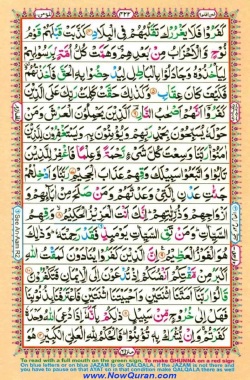 كَفَرُوْا فَلَا يَغْرُرْكَ تَقَلُّبُهُمْ فِى الْبِلَادِ كَذَّبَتْ قَبْلَهُمْ قَوْمُ
نُوْحٍ وَّالْاَحْزَابُ مِنْۢ بَعْدِهِمْ وَهَمَّتْ كُلُّ اُمَّةٍۭ بِرَسُوْلِهِمْ
لِيَاْخُذُوْهُ وَجَادَلُوْا بِالْبَاطِلِ لِيُدْحِضُوْا بِهِ الْحَقَّ فَاَخَذْتُهُمْ
فَكَيْفَ كَانَ عِقَابِ وَكَذٰلِكَ حَقَّتْ كَلِمَتُ رَبِّكَ عَلَى الَّذِيْنَ
كَفَرُوْٓا اَنَّهُمْ اَصْحٰبُ النَّارِ اَلَّذِيْنَ يَحْمِلُوْنَ الْعَرْشَ وَمَنْ
حَوْلَهٗ يُسَبِّحُوْنَ بِحَمْدِ رَبِّهِمْ وَيُؤْمِنُوْنَ بِهٖ وَيَسْتَغْفِرُوْنَ لِلَّذِيْنَ
اٰمَنُوْا رَبَّنَا وَسِعْتَ كُلَّ شَىْءٍ رَّحْمَةً وَّعِلْمًا فَاغْفِرْ لِلَّذِيْنَ
تَابُوْا وَاتَّبَعُوْا سَبِيْلَكَ وَقِهِمْ عَذَابَ الْجَحِيْمِ رَبَّنَا وَاَدْخِلْهُمْ
جَنّٰتِ عَدْنِ ۨالَّتِىْ وَعَدْتَّهُمْ وَمَنْ صَلَحَ مِنْ اٰبَآئِهِمْ وَ
اَزْوَاجِهِمْ وَذُرِّيّٰتِهِمْ اِنَّكَ اَنْتَ الْعَزِيْزُ الْحَكِيْمُ وَقِهِمُ
السَّيِّاٰتِ وَمَنْ تَقِ السَّيِّاٰتِ يَوْمَئِذٍ فَقَدْ رَحِمْتَهٗ وَذٰلِكَ
هُوَ الْفَوْزُ الْعَظِيْمُ اِنَّ الَّذِيْنَ كَفَرُوْا يُنَادَوْنَ لَمَقْتُ اللّٰهِ
اَكْبَرُ مِنْ مَّقْتِكُمْ اَنْفُسَكُمْ اِذْ تُدْعَوْنَ اِلَى الْاِيْمَانِ فَتَكْفُرُوْنَ
قَالُوْا رَبَّنَآ اَمَتَّنَا اثْنَتَيْنِ وَاَحْيَيْتَنَا اثْنَتَيْنِ فَاعْتَرَفْنَا بِذُنُوْبِنَا
فَهَلْ اِلٰى خُرُوْجٍ مِّنْ سَبِيْلٍ ذٰلِكُمْ بِاَنَّهٗٓ اِذَا دُعِىَ اللّٰهُ وَحْدَهٗ
كَفَرْتُمْ وَاِنْ يُّشْرَكْ بِهٖ تُؤْمِنُوْا فَالْحُكْمُ لِلّٰهِ الْعَلِىِّ الْكَبِيْرِ هُوَ
To read with a full mouth on the green sign. To make GHUNNA on a red sign
On blue letters or on blue JAZAM to do QALQALA, if the JAZAM is not there and
you have to pause on that AYAT so in that condition make QALQALA there as well
www.NowQuran.com